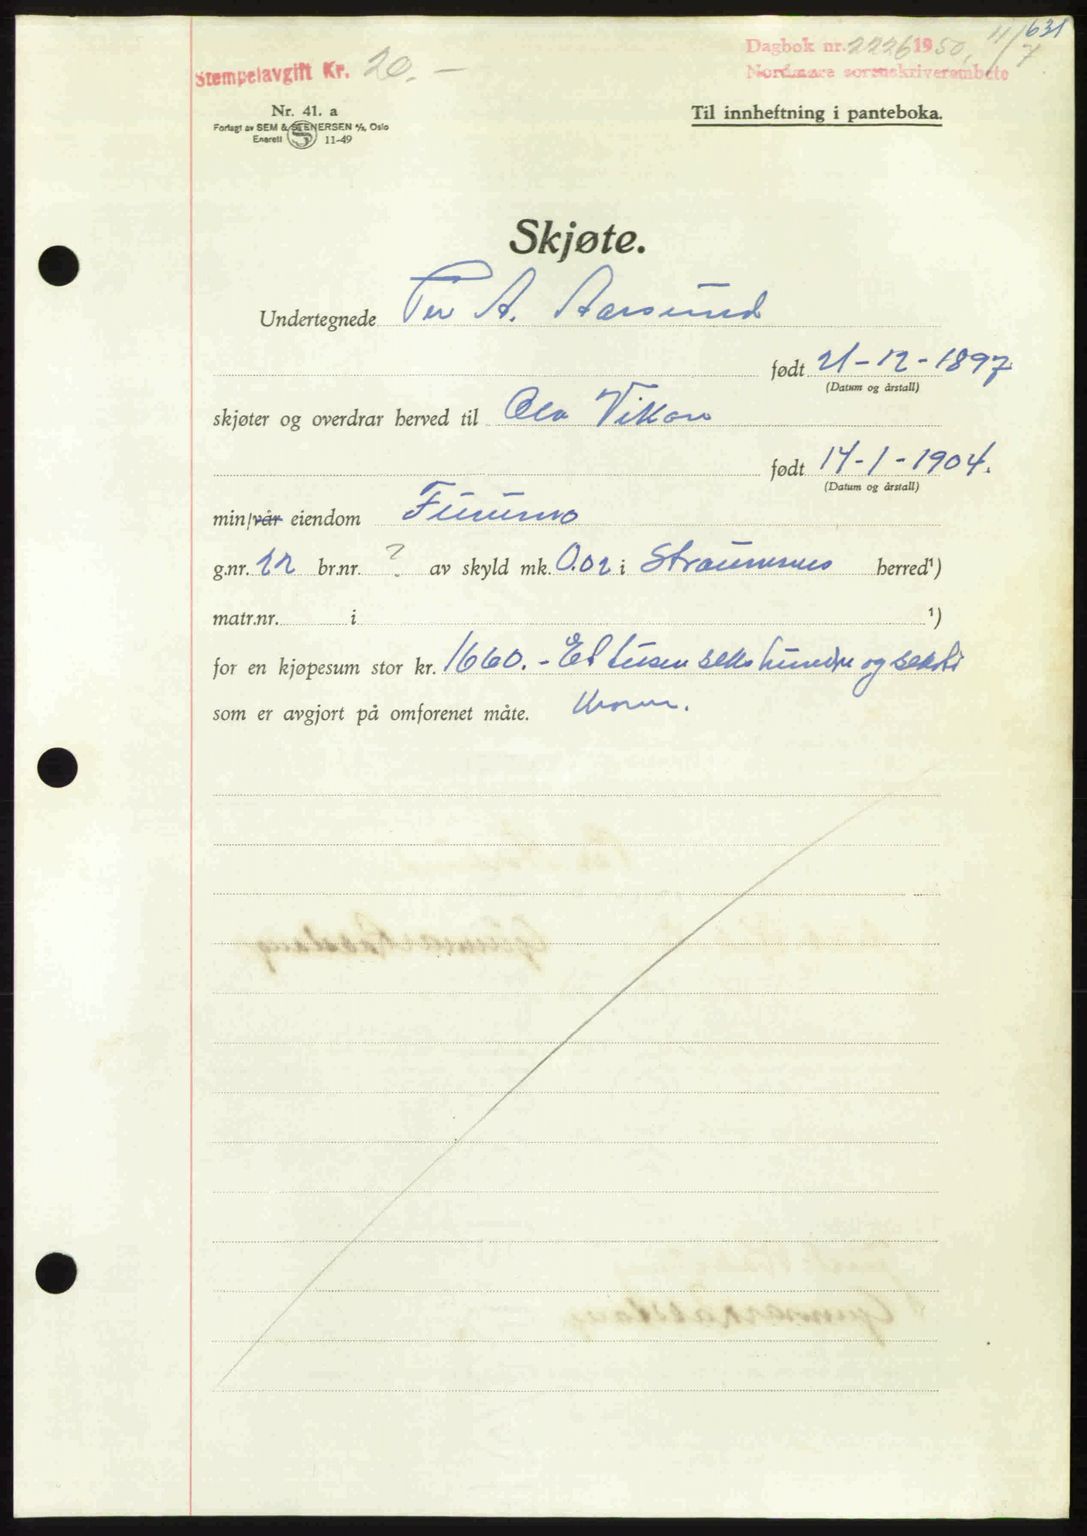 631
Dagbok nr. 2226 1950. 11/7
Nordmøre sorenskriverembete
Stempelavgift Kr. 20.-
Nr. 41. a
Forlagt av SEM & STENERSEN A/S, Oslo
Enerett S 11-49
Til innheftning i panteboka.
Skjøte.
Undertegnede Per A. Aarsund
født 21-12-1897
(Datum og årstall)
skjøter og overdrar herved til Ola Vikan
født 14-1-1904.
(Datum og årstall)
min/vår eiendom Furumo
g.nr. 22 br.nr. ? av skyld mk. 0.02 i Straumsnes herred¹)
matr.nr. i ¹)
for en kjøpesum stor kr. 1660.- Et tusen seks hundre og seksti
som er avgjort på omforenet måte. kroner.